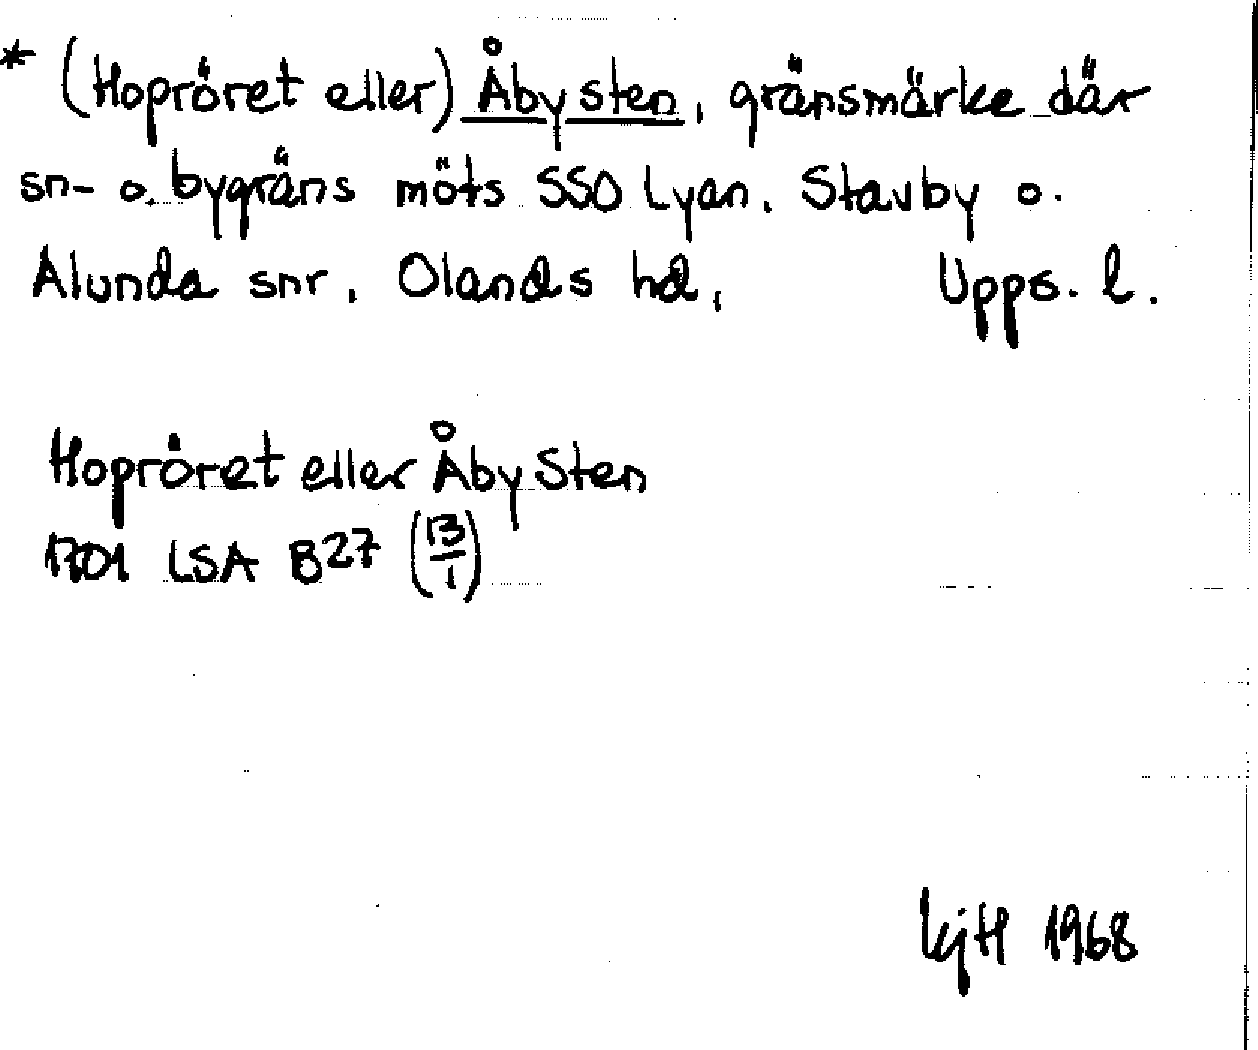 * (Hopröret eller) Åby sten, gränsmärke där
sn- o. bygräns möts SSO Lyan. Stavby o.
Alunda snr, Olands hd, Upps. l.
Hopröret eller Åby Sten
1701 LSA B27 (13/1)
KjH 1968